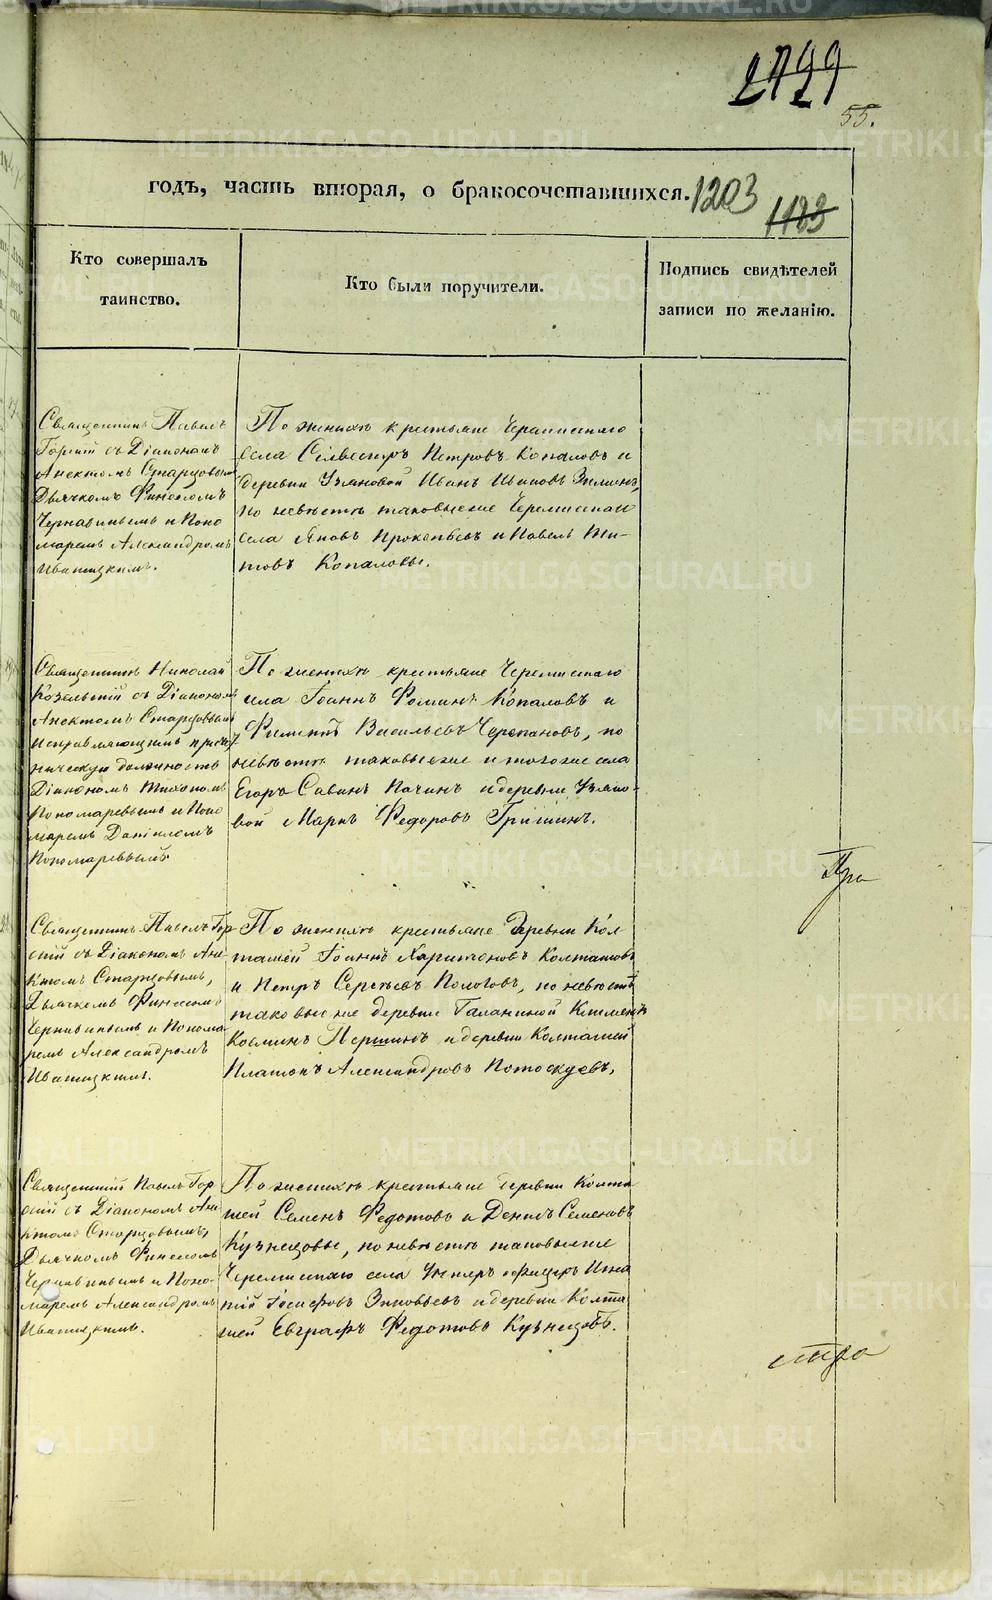 2429
55.
годъ, часть вторая, о бракосочетавшихся.
1203
1183
Кто совершалъ
таинство.
Кто были поручители.
Подпись свидѣтелей
записи по желанію.
Священникъ Павелъ
Горный съ Діакономъ
Анектомъ Старцовымъ
Дьячкомъ Финеесомъ
Чернавинымъ и Поно
маремъ Александромъ
Ивацкимъ.
По женихѣ крестьяне Черемисскаго
села Сильвестръ Петровъ Копаловъ и
деревни Узяновой Иванъ Ивановъ Зилинъ,
по невѣстѣ таковыеже Черемисскаго
села Яковъ Прокопьевъ и Павелъ Ти-
товъ Копаловы.
Священникъ Николай
Козельскій съ Діакономъ
Анектомъ Старцовымъ
исправляющимъ причет
ническую должность
Діакономъ Тихономъ
Пономаревымъ и Поно
маремъ Даніиломъ
Пономаревымъ
По женихѣ крестьяне Черемисскаго
села Іоаннъ Фоминъ Копаловъ и
Филиппъ Васильевъ Черепановъ, по
невѣстѣ таковыеже и тогоже села
Егоръ Савинъ Пачинъ и деревни Узяно-
вой Маркъ Федоровъ Гришинъ.
Пра
Священникъ Павелъ Гор
ный съ Діакономъ Ане-
ктомъ Старцовымъ,
Дьячкомъ Финеесомъ
Чернавинымъ и Понома
ремъ Александромъ
Ивацкимъ.
По женихѣ крестьяне деревни Кол
ташей Іоаннъ Харитоновъ Колташовъ
и Петръ Сергѣевъ Пологовъ, по невѣстѣ
таковыеже деревни Галаниной Климентъ
Косминъ Першинъ и деревни Колташей
Платонъ Александровъ Потоскуевъ,
Священникъ Павелъ Гор
ный съ Діакономъ Ане
ктомъ Старцовымъ,
Дьячкомъ Финеесомъ
Чернавинымъ и Поно-
маремъ Александромъ
Ивацкимъ.
По женихѣ крестьяне деревни Колта
шей Семенъ Федотовъ и Денисъ Семеновъ
Кузнецовы, по невѣстѣ таковыеже
Черемисскаго села Унтеръ офицеръ Игна
тій Іосифовъ Зиновьевъ и деревни Колта
шей Евграфъ Федотовъ Кузнецовъ.
METRIKI.GASO-URAL.RU